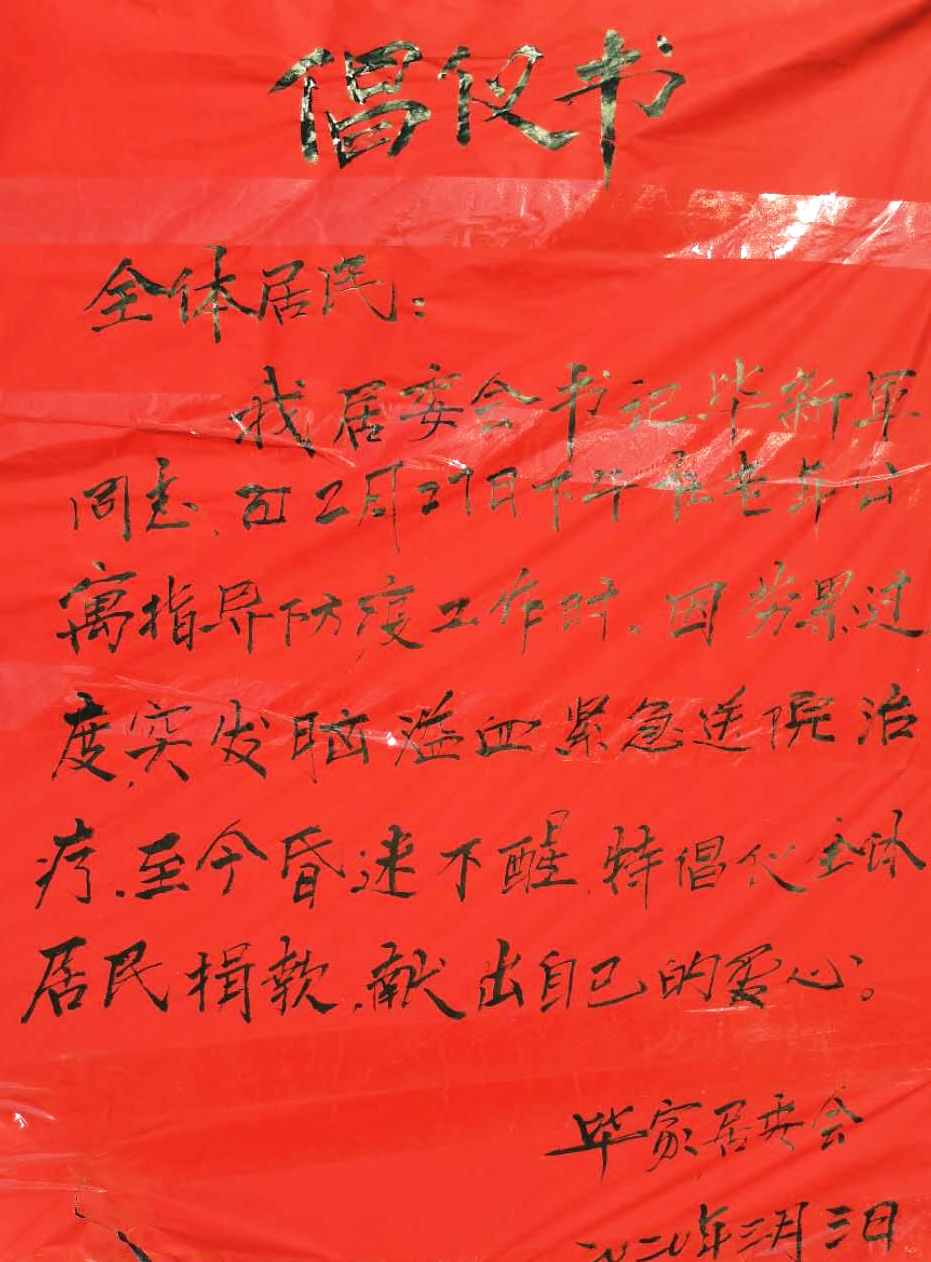 倡仪书
全体居民:
我居委会书记毕新军
同志,在2月27日下午在老年公
寓指导防疫工作时,因劳累过
度突发脑溢血紧急送院治
疗,至今昏迷不醒,特倡仪全体
居民捐款,献出自己的爱心。
毕家居委会
二〇二〇年三月三日